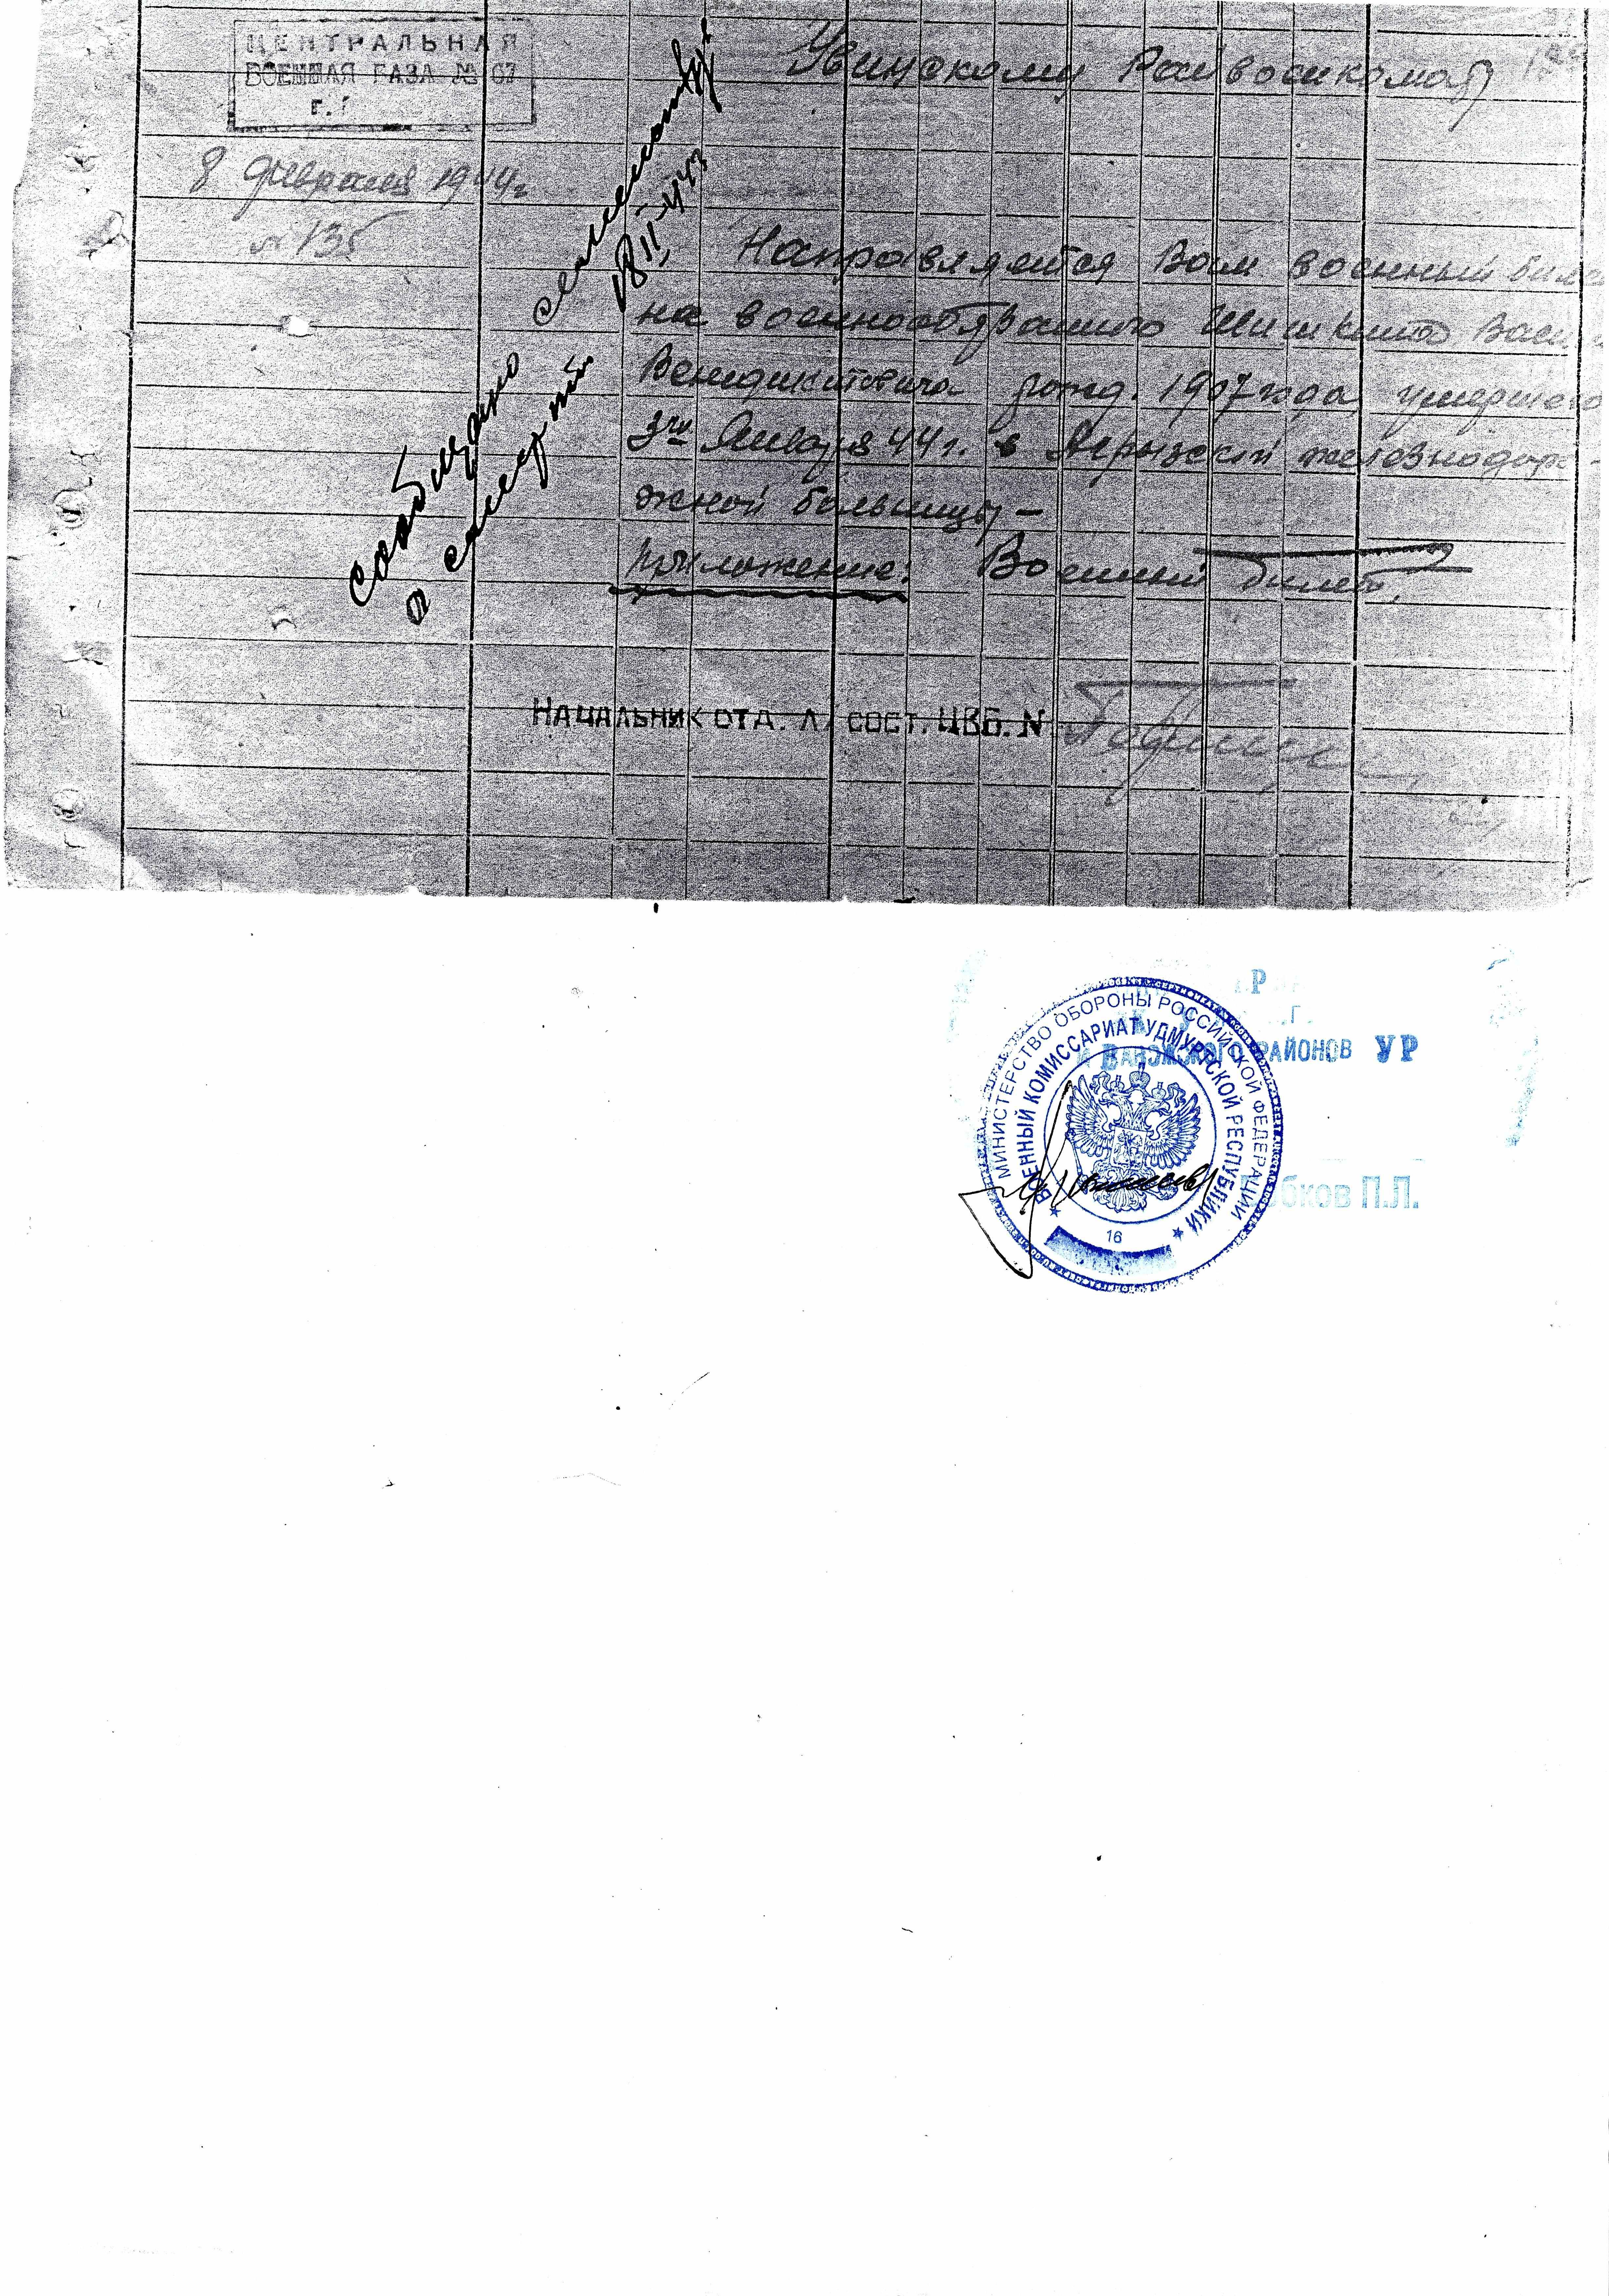 ЦЕНТРАЛЬНАЯ
ВОЕННАЯ БАЗА № 67
г.
Увинскому Райвоенкомату
8 февраля 1944г
№ 135
Направляется Вам военный биле
на военнообязанного Шишкина Васи
Венидиктовича рожд. 1907 года, умершего
3го Января 44 г. в Агрызской железнодоро-
жной больницы -
Приложение: Военный билет,
сообщено
о смерти
18/II-443
НАЧАЛЬНИК ОТД. Л/СОСТ. ЦВБ. №
МИНИСТЕРСТВО ОБОРОНЫ РОССИЙСКОЙ ФЕДЕРАЦИИ
ВОЕННЫЙ КОМИССАРИАТ УДМУРТСКОЙ РЕСПУБЛИКИ
16
И ВАВОЖСКОГО РАЙОНОВ УР
бков П.Л.